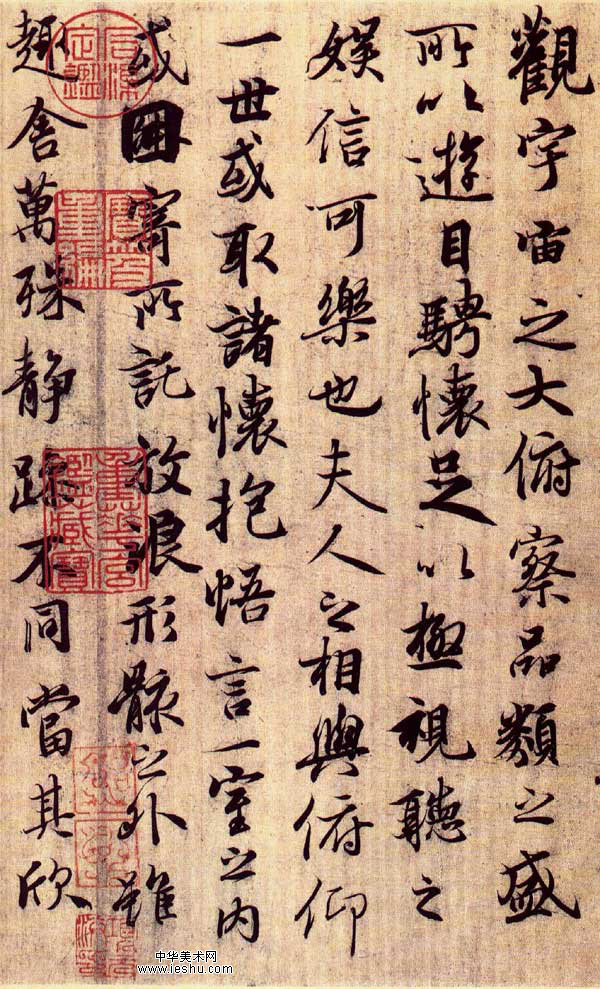 觀宇宙之大俯察品類之盛
所以遊目騁懷足以極視聽之
娛信可樂也夫人之相與俯仰
一世或取諸懷抱悟言一室之内
或因寄所託放浪形骸之外雖
趣舍萬殊静躁不同當其欣
石渠定鑑
寶笈重編
中华美术网
www.ieshu.com